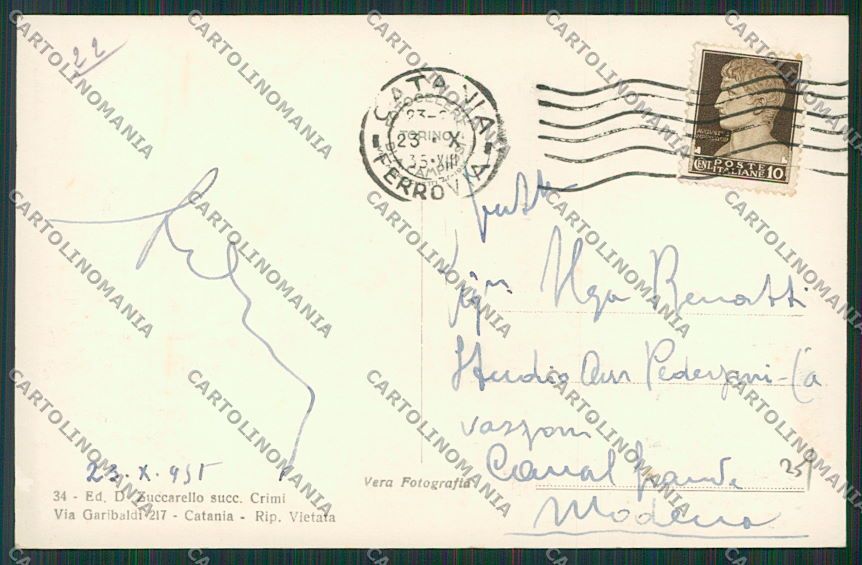 22
CATANIA
23 · X
35·XIII
FERROVIA
POSTE
ITALIANE
CENT. 10
Sig.na Olga Benatti
Studio Avv. Pederzani-Ca
vazzoni
Canal grande
Modena
23.X.935
Vera Fotografia
34 - Ed. D. Zuccarello succ. Crimi
Via Garibaldi 217 - Catania - Rip. Vietata
CARTOLINOMANIA